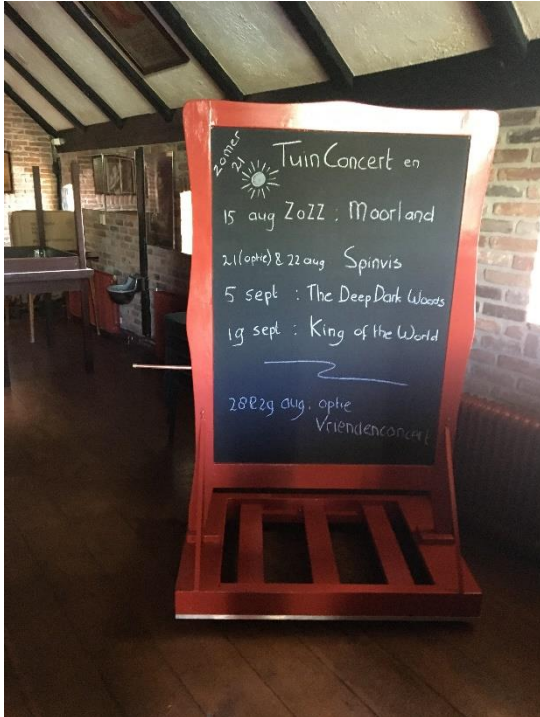 zomer
21
TuinConcert en
15 aug ZoZZ : Moorland
21(optie) & 22 aug Spinvis
5 sept : The Deep Dark Woods
19 sept : King of the World
28&29 aug. optie
Vriendenconcert